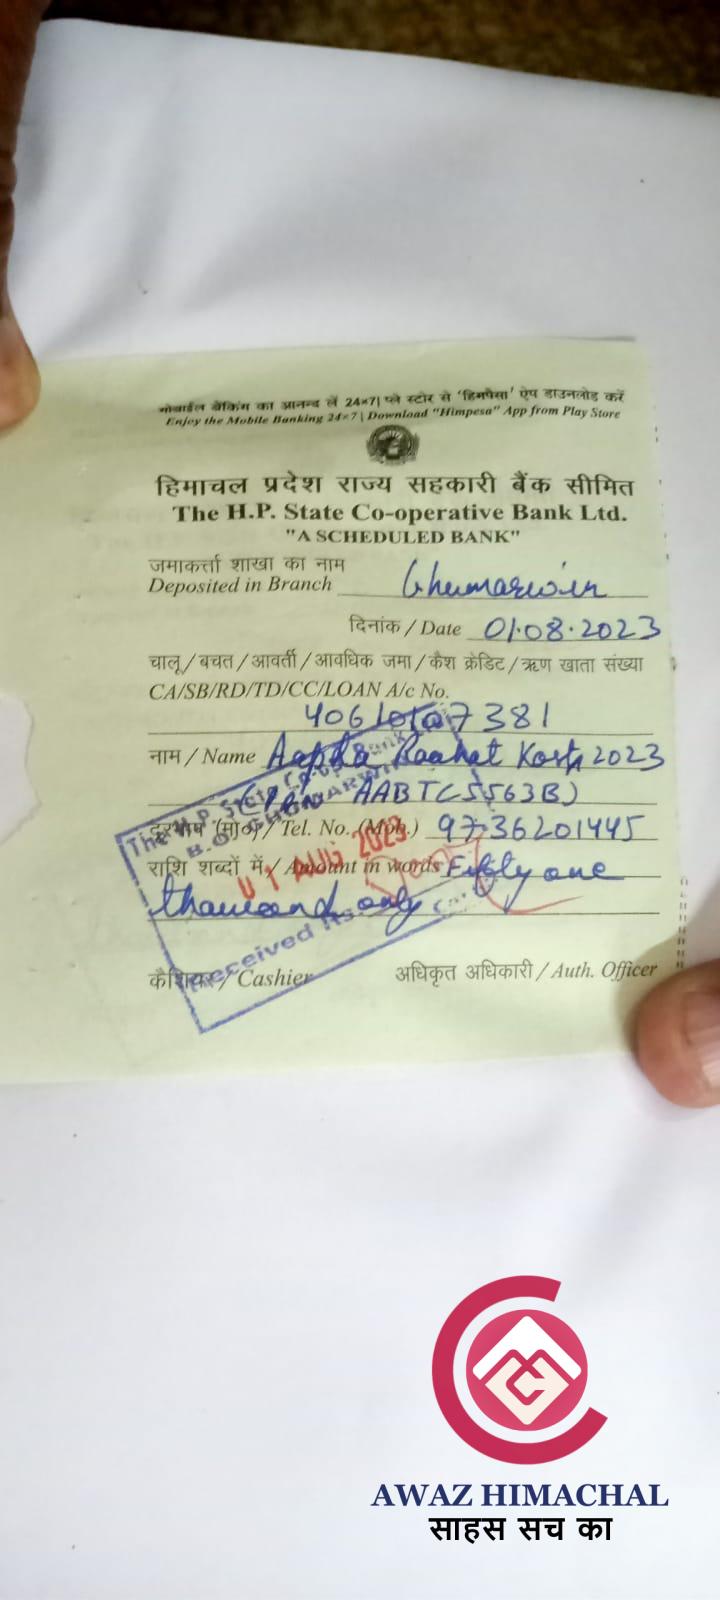 मोबाईल बैंकिंग का आनन्द लें 24×7| प्ले स्टोर से 'हिमपैसा' ऐप डाउनलोड करें
Enjoy the Mobile Banking 24×7 | Download "Himpesa" App from Play Store
हिमाचल प्रदेश राज्य सहकारी बैंक सीमित
The H.P. State Co-operative Bank Ltd.
"A SCHEDULED BANK"
जमाकर्त्ता शाखा का नाम
Deposited in Branch Ghumarwin
दिनांक / Date 01.08.2023
चालू / बचत / आवर्ती / आवधिक जमा / कैश क्रेडिट / ऋण खाता संख्या
CA/SB/RD/TD/CC/LOAN A/c No.
7381
नाम / Name Aapda Raahat Kosh 2023
AABTC5563B)
दूरभाष (मो०) / Tel. No. (Mob.) 9736201445
राशि शब्दों में / Amount in words Fifty one
thousand only
The H.P. State Co-op. Bank
B.O. GHUMARWIN
01 AUG 2023
Received Rs.
कैशियर / Cashier अधिकृत अधिकारी / Auth. Officer
AWAZ HIMACHAL
साहस सच का